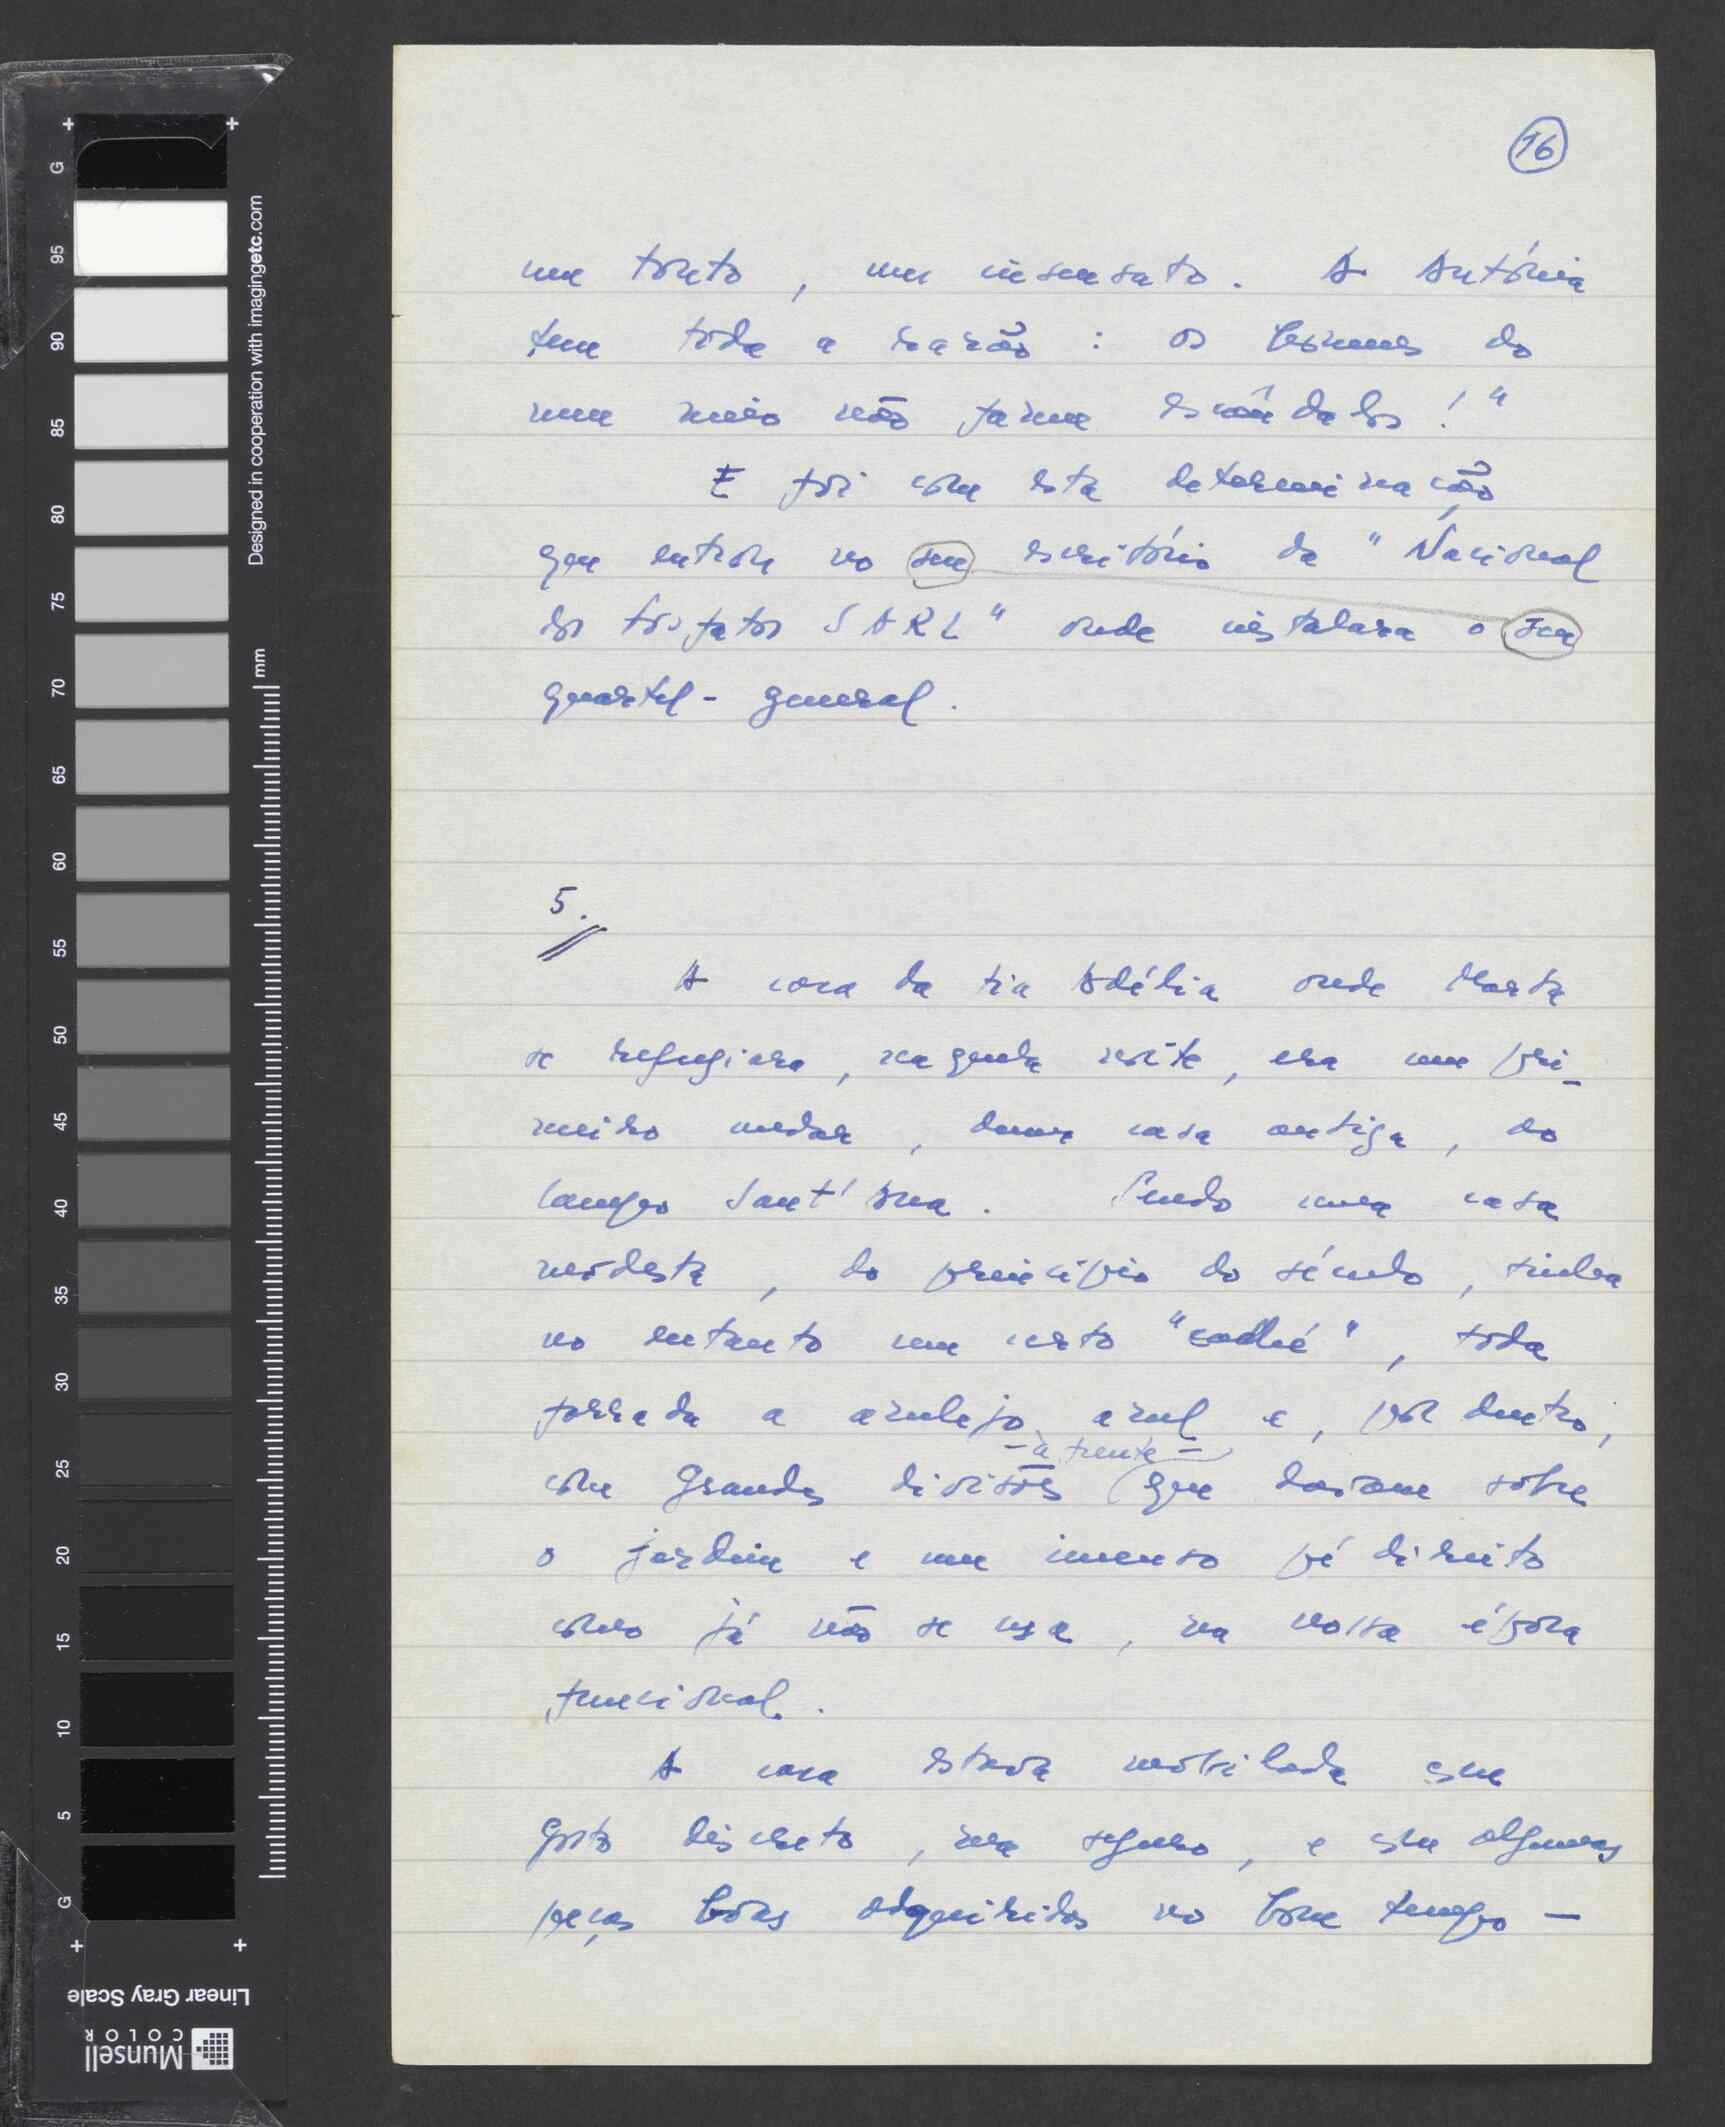 16
um tonto, um insensato. A Antónia
tem toda a razão: os homens do
meu meio não fazem escândalos!"
E foi com esta determinação
que entrou no seu escritório da "Nacional
dos Fosfatos SARL" onde instalara o seu
quartel-general.
5.
A casa da tia Adélia onde Marta
se refugiara, naquela noite, era um pri-
meiro andar, duma casa antiga, do
Campo Sant'Ana. Sendo uma casa
modesta, do princípio do século, tinha
no entanto um certo "cachê", toda
forrada a azulejo azul e, por dentro,
- à frente -
com grandes divisões que davam sobre
o jardim e um imenso pé direito
como já não se usa, na nossa época
funcional.
A casa estava mobilada com
gosto discreto, mas seguro, e com algumas
peças bôas adquiridas no bom tempo -
G
95
90
85
80
75
70
65
60
55
50
45
40
35
30
25
20
15
10
5
G
Designed in cooperation with imagingetc.com
mm
Linear Gray Scale
Munsell
COLOR